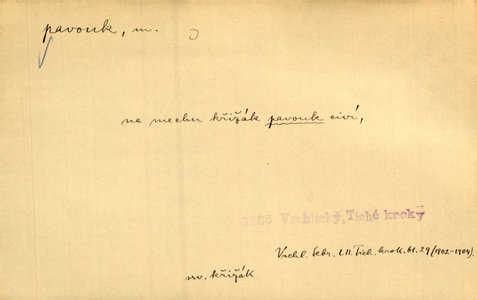 pavouk, m.
na mechu křižák pavouk civí,
1905 Vrchlický, Tiché kroky
Vrchl. Sebr. LII. Tich. krok. 61. 29 (1902-1904).
srv. křižák